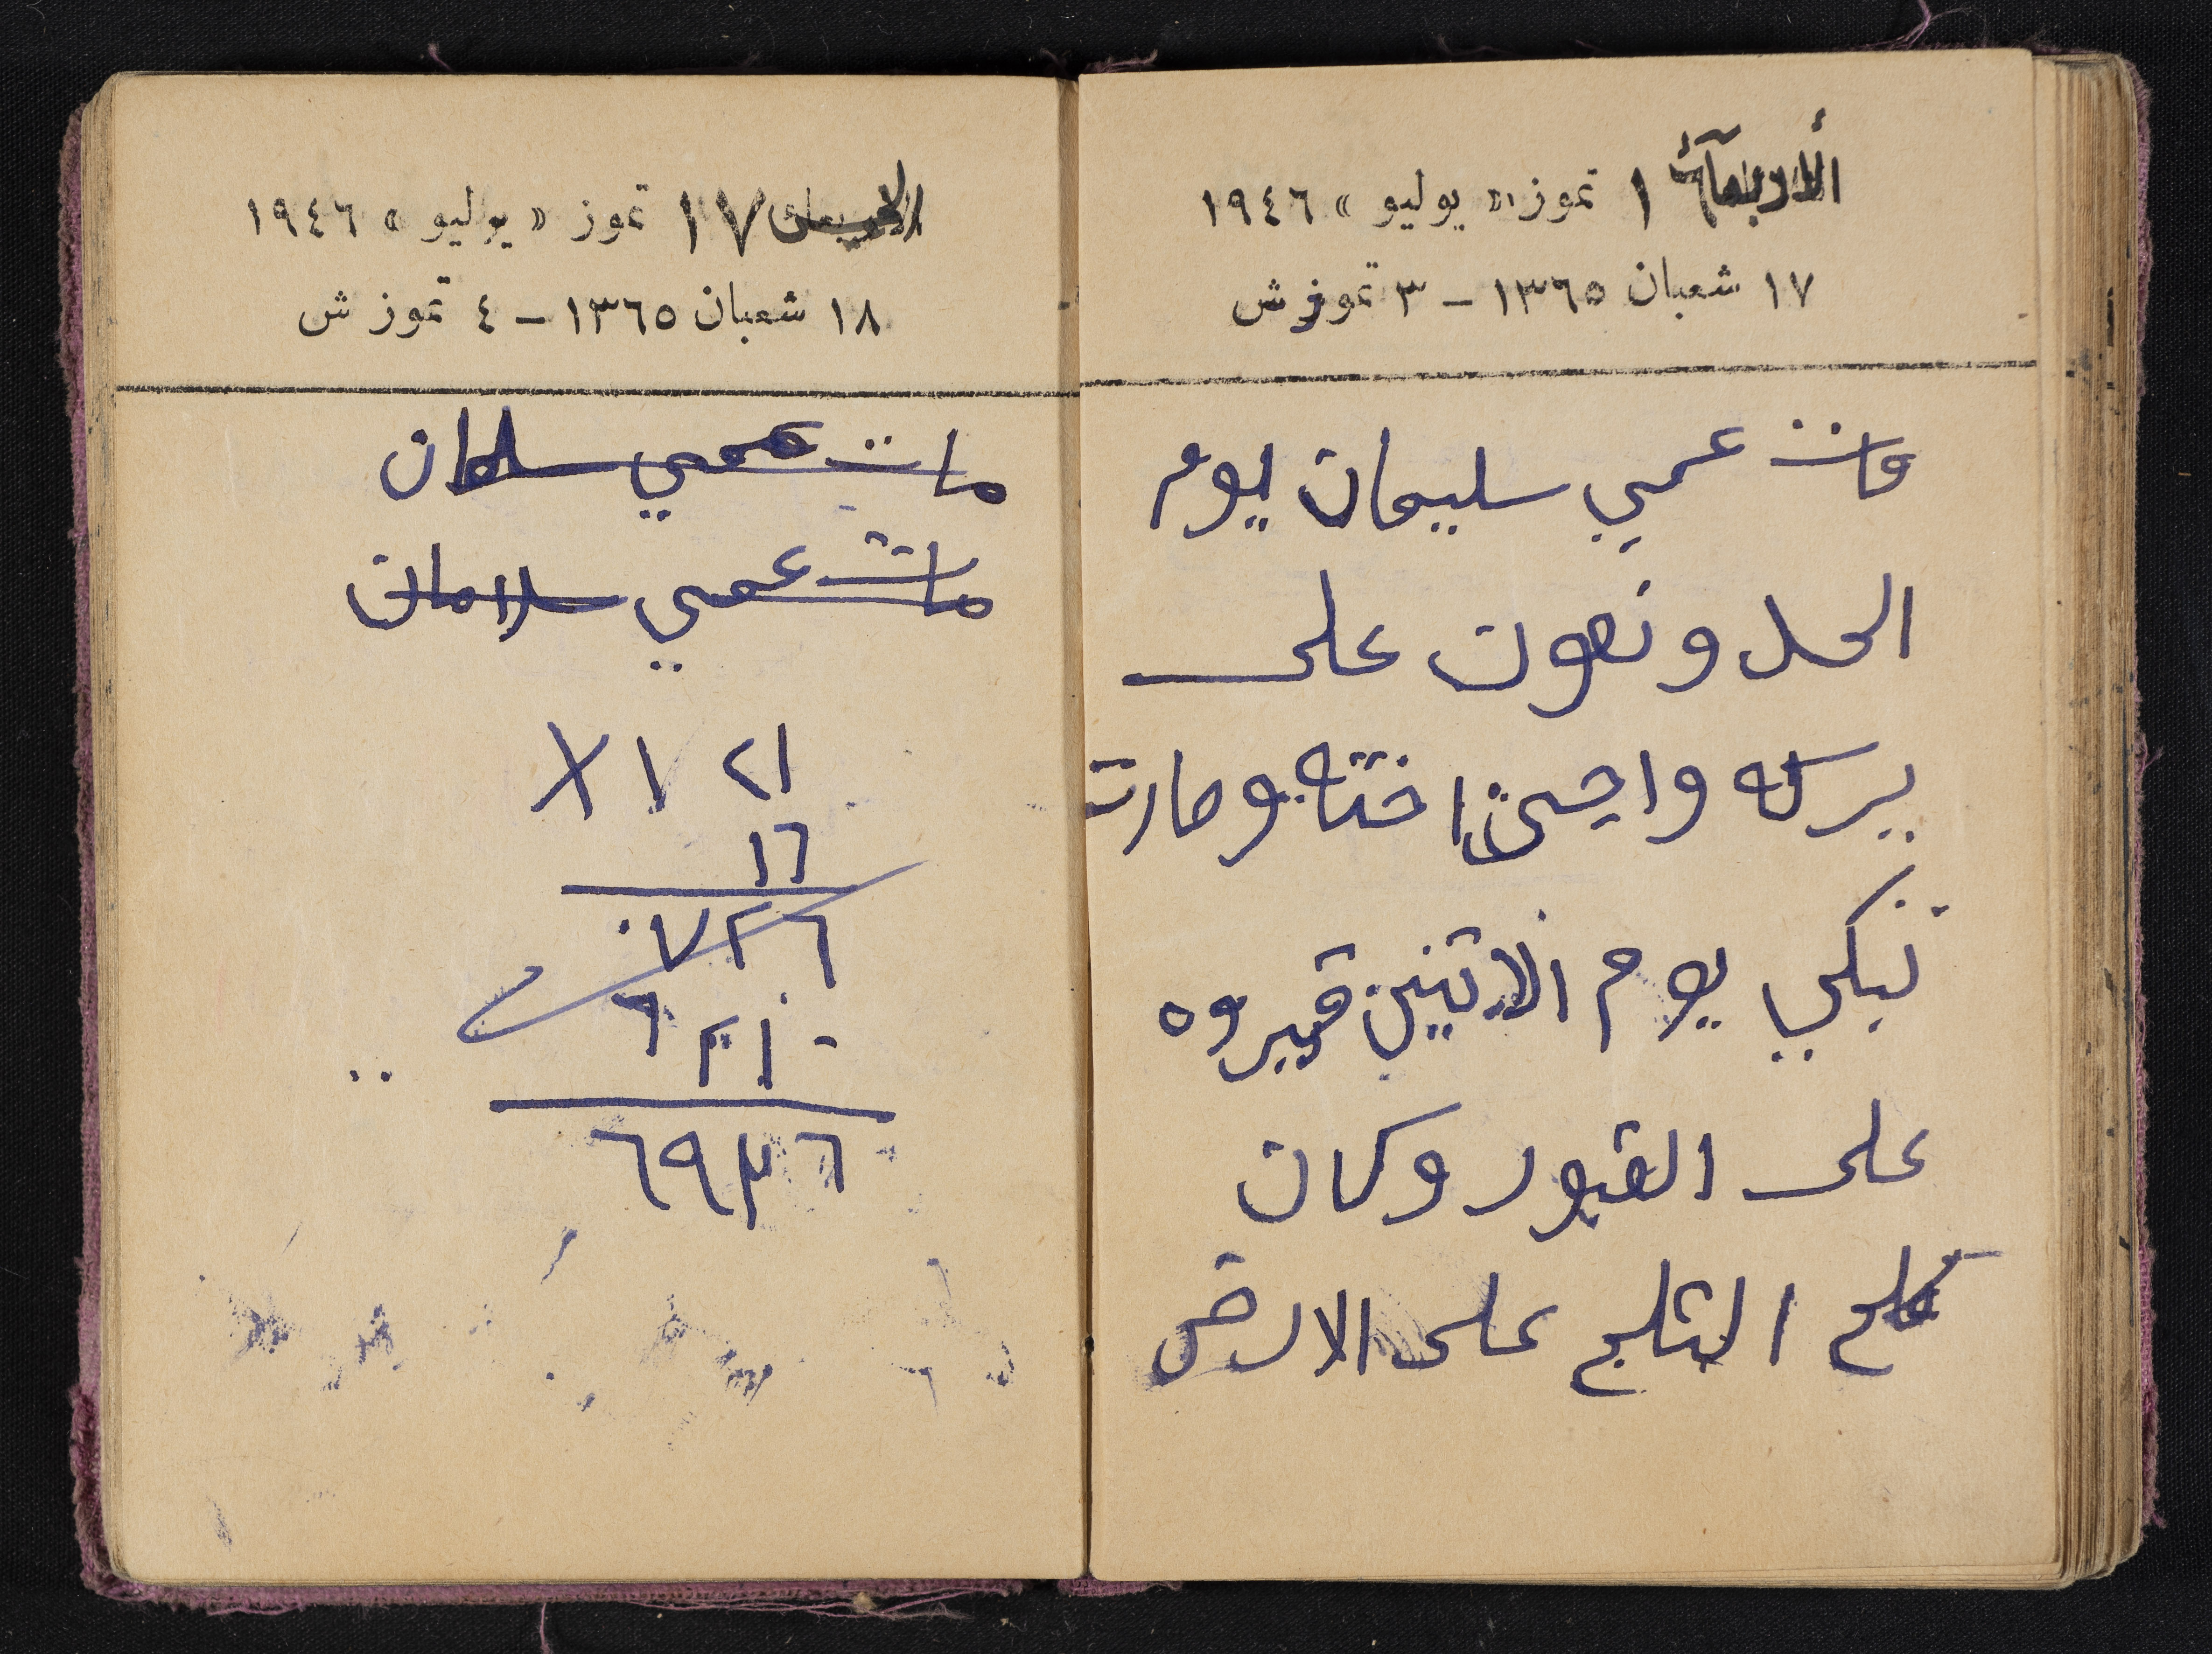 الأربعاء ١٦ تموز «يوليو» ١٩٤٦
١٧ شعبان ١٣٦٥ - ٣ تموز ش
مات عمي سليمان يوم
الحد ونصوت على
واجت اخته وصارت
تبكي يوم الاتنين قبروه
على القبور وكان
التلج على الارض
١٧ تموز «يوليو» ١٩٤٦
١٨ شعبان ١٣٦٥ - ٤ تموز ش
مات عمي سلمان
مات عمي سلامان
٢١
١٦
٧٢٦
٦٢١٠
٦٩٣٦